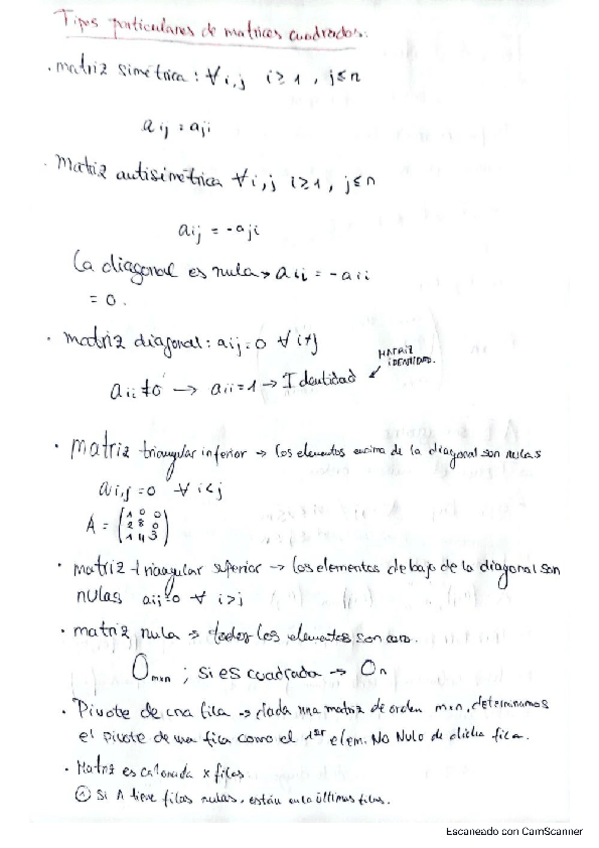 Tipos particulares de matrices cuadradas:
· matriz simétrica : ∀i,j i≥1 , j≤n
aij = aji
· Matriz antisimétrica ∀i,j i≥1, j≤n
aij = -aji
La diagonal es nula → aii = -aii
= 0.
· matriz diagonal: aij=0 ∀ i≠j
MATRIZ
IDENTIDAD.
aii≠0 → aii=1 → Identidad
· matriz triangular inferior → los elementos encima de la diagonal son nulas
ai,j =0 ∀ i<j
1 0 0
A = 2 8 0
1 4 3
· matriz triangular superior → los elementos debajo de la diagonal son
nulas aij=0 ∀ i>j
· matriz nula → todos los elementos son cero.
Omxn ; si es cuadrada → On
· Pivote de una fila → dada una matriz de orden mxn, determinamos
el pivote de una fila como el 1er elem. NO NULO de dicha fila.
· Matriz escalonada x filas
① Si A tiene filas nulas, están en la últimas filas.
Escaneado con CamScanner